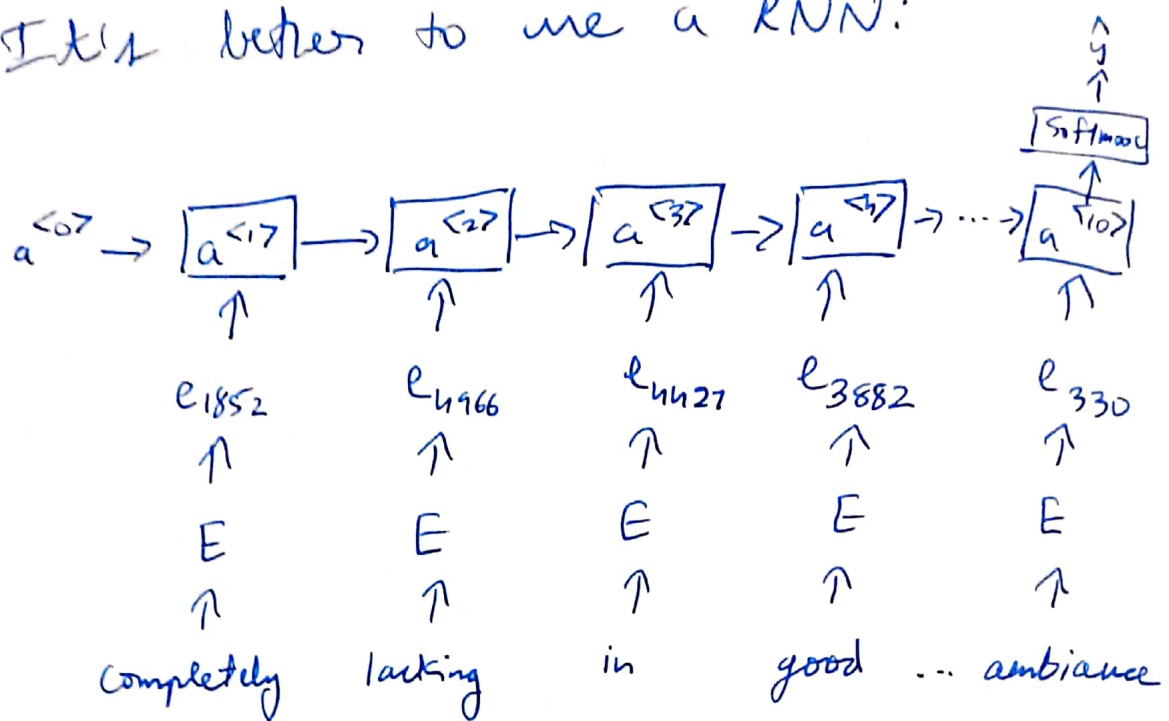 It's better to use a RNN:
ŷ
Softmax
a<0> → a<1> → a<2> → a<3> → a<4> → ... → a<10>
e1852 e4966 e4427 e3882 e330
E E E E E
completely lacking in good ... ambiance